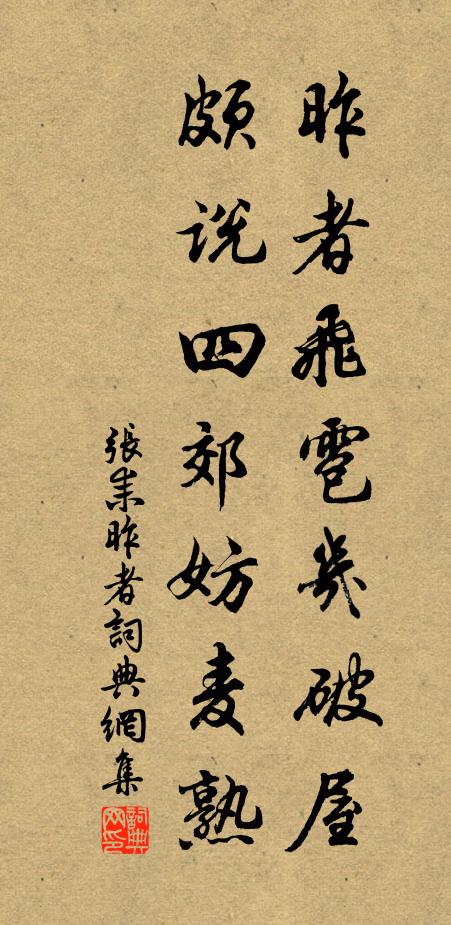 昨者飛雹幾破屋
頗説四郊妨麦熟
張耒昨者詞典網集
詞典网印